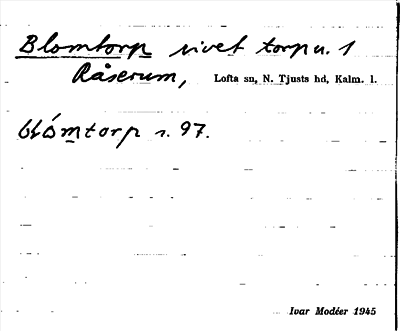 Blomtorp rivet torp u. 1
Råserum, Lofta sn, N. Tjusts hd, Kalm. l.
blómtorp s. 97.
Ivar Modéer 1945